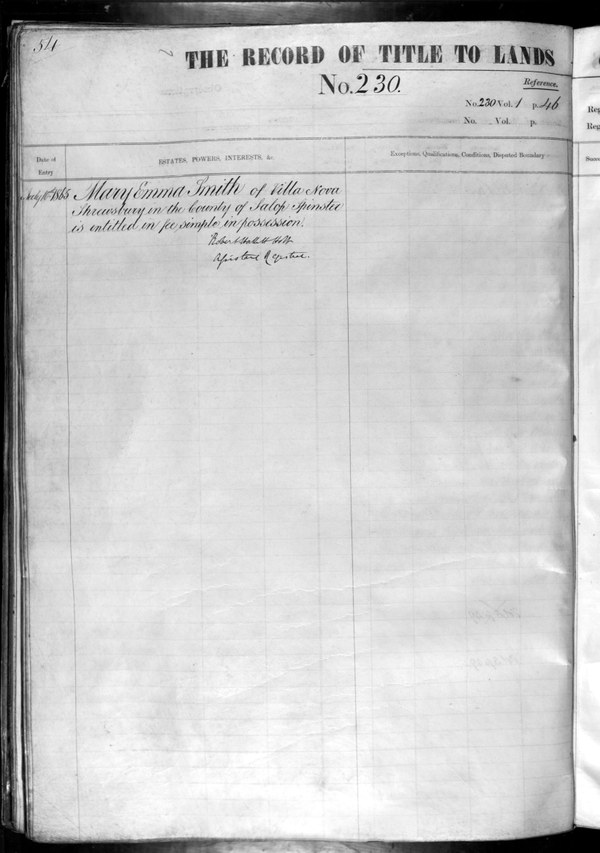 54
THE RECORD OF TITLE TO LANDS
No. 230.
Reference.
No. 230 Vol. 1 p. 46
No. Vol. p.
Date of
Entry
ESTATES, POWERS, INTERESTS, &c.
Exceptions, Qualifications, Conditions, Disputed Boundary
1865 Mary Emma Smith of Villa Nova
Shrewsbury in the County of Salop Spinster
is entitled in fee simple in possession.
Robert Hallett Holt
Assistant Registrar.
Reg
Reg